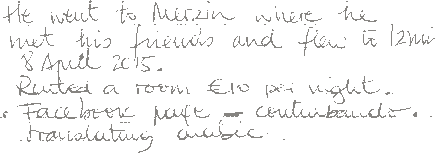 He went to Merzin where he
met his friends and flew to Izmir
8 April 2015.
Rented a room €10 per night.
. Facebook page - contrabando.
translating arabic